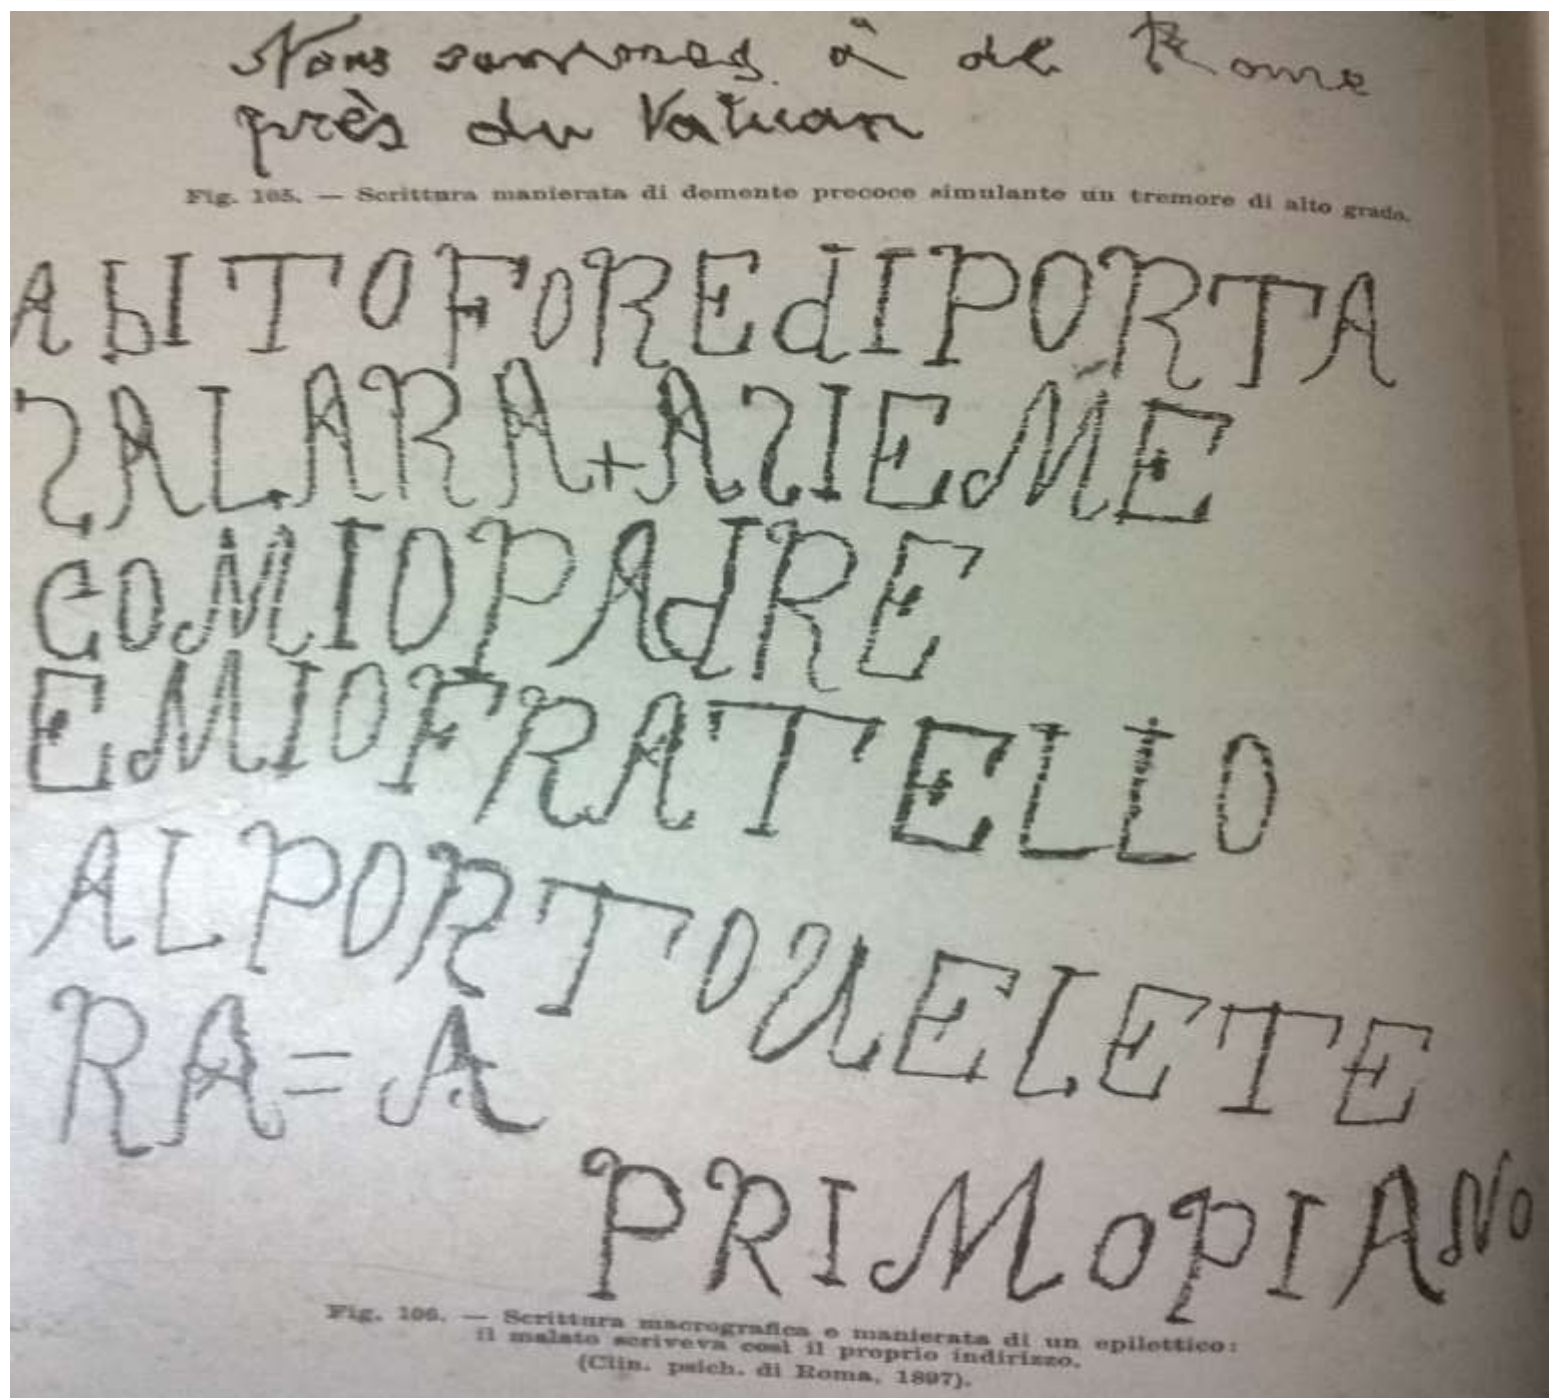 Nous sommes à de Rome
près du Vatican
Fig. 105. — Scrittura manierata di demente precoce simulante un tremore di alto grado.
AbITO FORE dI PORTA
SALARA + ASIEME
COMIO PAdRE
E MIO FRATELLO
AL PORTO UELETE
RA = A
PRIMO PIANO
Fig. 106. — Scrittura macrografica e manierata di un epilettico:
il malato scriveva così il proprio indirizzo.
(Clin. psich. di Roma, 1897).